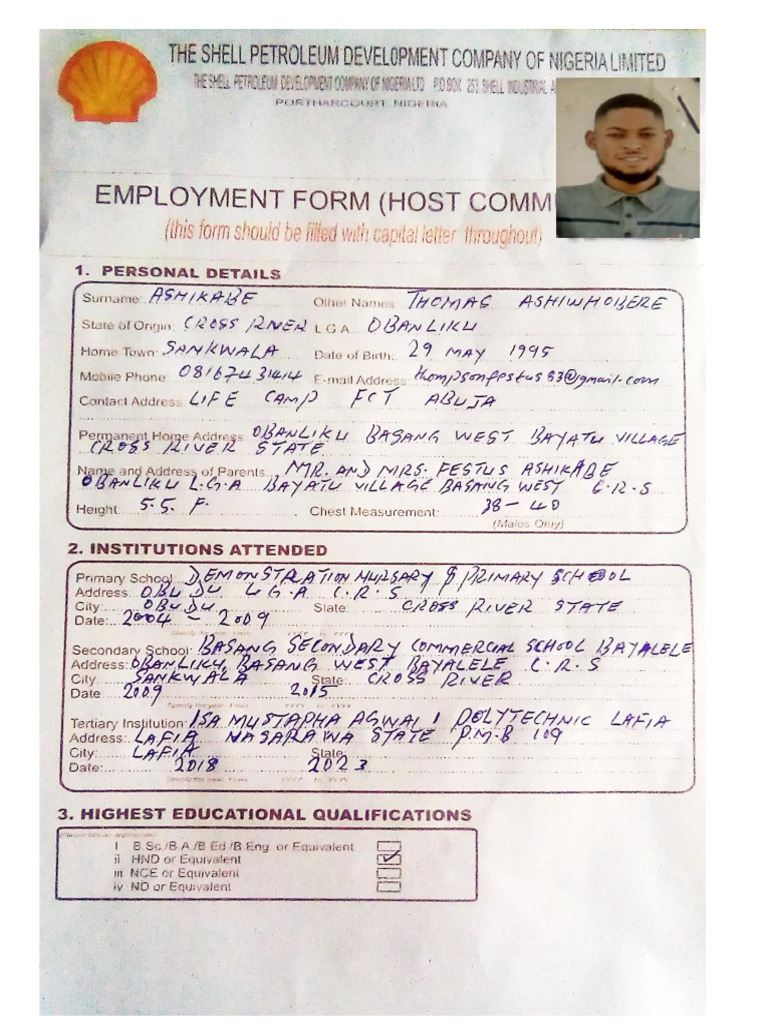 THE SHELL PETROLEUM DEVELOPMENT COMPANY OF NIGERIA LIMITED
THE SHELL PETROLEUM DEVELOPMENT COMPANY OF NIGERIA LTD P.O.BOX 263 SHELL INDUSTRIAL A
PORTHARCOURT, NIGERIA
EMPLOYMENT FORM (HOST COMM
(this form should be filled with capital letter throughout)
1. PERSONAL DETAILS
Surname: ASHIKABE Other Names: THOMAS ASHIWHOBERE
State of Origin: CROSS RIVER L.G.A. OBANLIKU
Home Town: SANKWALA Date of Birth: 29 MAY 1995
Mobile Phone: 08167431414 E-mail Address: thompsonfestus93@gmail.com
Contact Address: LIFE CAMP FCT ABUJA
Permanent Home Address: OBANLIKU BASANG WEST BAYATU VILLAGE
CROSS RIVER STATE
Name and Address of Parents: MR. AND MRS. FESTUS ASHIKABE
OBANLIKU L.G.A BAYATU VILLAGE BASANG WEST C.R.S
Height: 5.5. F. Chest Measurement: 38-40
(Males Only)
2. INSTITUTIONS ATTENDED
Primary School: DEMONSTRATION NURSARY & PRIMARY SCHOOL
Address: OBUDU L.G.A C.R.S
City: OBUDU State: CROSS RIVER STATE
Date: 2004 - 2009
Secondary School: BASANG SECONDARY COMMERCIAL SCHOOL BAYALELE
Address: OBANLIKU, BASANG WEST BAYALELE C.R.S
City: SANKWALA State: CROSS RIVER
Date 2009 2015
Tertiary Institution: ISA MUSTAPHA AGWAI I POLYTECHNIC LAFIA
Address: LAFIA NASARAWA STATE P.M.B 109
City: LAFIA State:
Date: 2018 2023
3. HIGHEST EDUCATIONAL QUALIFICATIONS
i B.Sc./B.A./B.Ed./B.Eng. or Equivalent
ii HND or Equivalent
iii NCE or Equivalent
iv ND or Equivalent